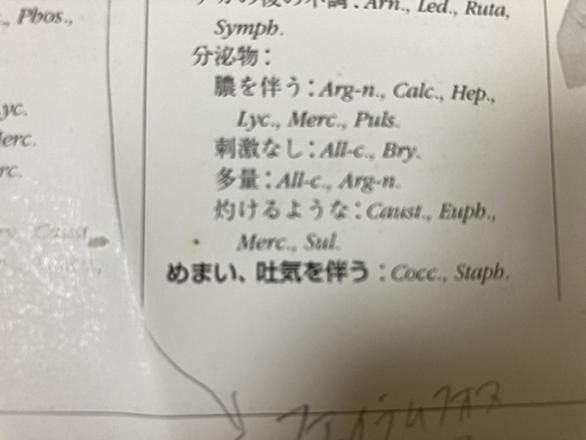 Phos.,
の後の不調：Arn., Led., Ruta,
Symph.
分泌物：
膿を伴う：Arg-n., Calc., Hep.,
Lyc., Merc., Puls.
刺激なし：All-c., Bry.
多量：All-c., Arg-n.
灼けるような：Caust., Euph.,
Merc., Sul.
めまい、吐気を伴う：Cocc., Staph.
yc.
erc.
rc.
Caust